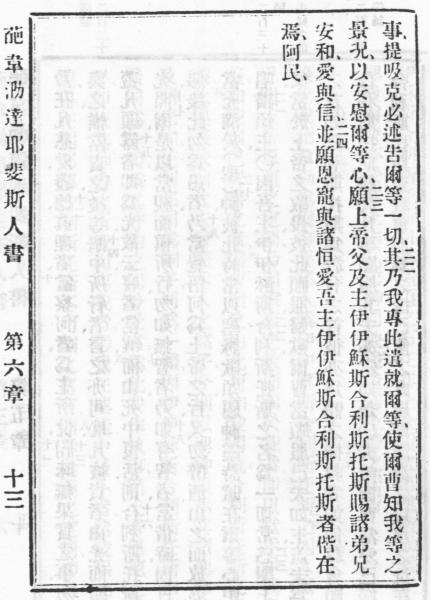 事、提吸克必述告爾等一切、二二其乃我專此遣就爾等、使爾曹知我等之
景况、以安慰爾等心、二三願上帝父及主伊伊穌斯合利斯托斯賜諸弟兄
安和愛與信、二四並願恩寵與諸恒愛吾主伊伊穌斯合利斯托斯者偕在
焉、阿民、
葩韋泐達耶斐斯人書 第六章 十三